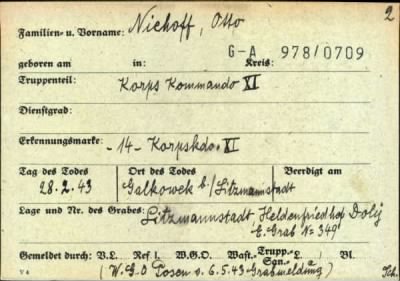 2
Familien- u. Vorname: Niehoff, Otto
G-A 978/0709
geboren am in: Kreis:
Truppenteil: Korps Kommando XI
Dienstgrad:
Erkennungsmarke: -14- Korpskdo. XI
Tag des Todes Ort des Todes Beerdigt am
28.2.43 Galkowek b./Litzmannstadt
Lage und Nr. des Grabes: Litzmannstadt, Heldenfriedhof Doly
E. Grab No 349
Gemeldet durch: V.L. Ref I. W.G.O. Wast.- Trupp.- San.- a L. / Bl.
V 6 (W.G.O Posen v. 6.5.43 Grabmeldung) Sch.